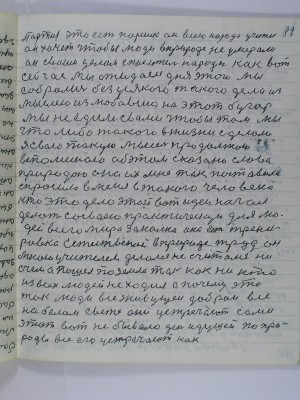 Партия это есть парник он всего народа учител 81
он хочет чтобы люди в природе не умирали
он своим делом спасител народа как вот
сейчас мы ожидаем дня этого мы
собрались без всякого такого дела из
мыслию из любовию на этот бугор
мы не едим с вами чтобы там мы
что либо такого в жизни сделали
я свою такую мысль продолжаю
вспоминаю об этом сказано слова
природою она их мне так поставила
спросила в меня в такого человека
кто это дело этой вот идеи начал
делать со своею практическую для лю-
дей всего мира закалка она ест трени-
ровка естественной в природе труд он
многих учителем делался не считался ни
с чем а пошел по земле так как ни кто
из всех людей не ходил а почему это
так люди все живущие добром все
на белом свете они устречают само
этот вот не бывало дел идущей по при-
роде все его устречают как